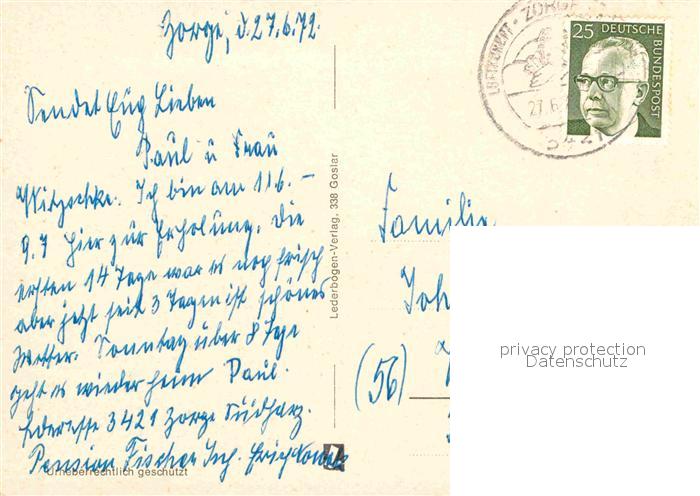 Zorge, d. 27.6.72.
Sendet Eug Lieben
Paul u Frau
Ich bin am 11.6. –
9.7 hier zur Erholung. Die
ersten 14 Tage war es noch frisch
aber jetzt seit 3 Tagen ist schönes
Wetter. Sonntag über 8 Tage
geht es wieder heim Paul.
3421 Zorge Südharz.
Pension Fischer Inh. Erich
Urheberrechtlich geschützt
Lederbogen-Verlag, 338 Goslar
ZORGE
27.6
3421
25 DEUTSCHE BUNDESPOST
Familie
Joh
(56)
privacy protection
Datenschutz